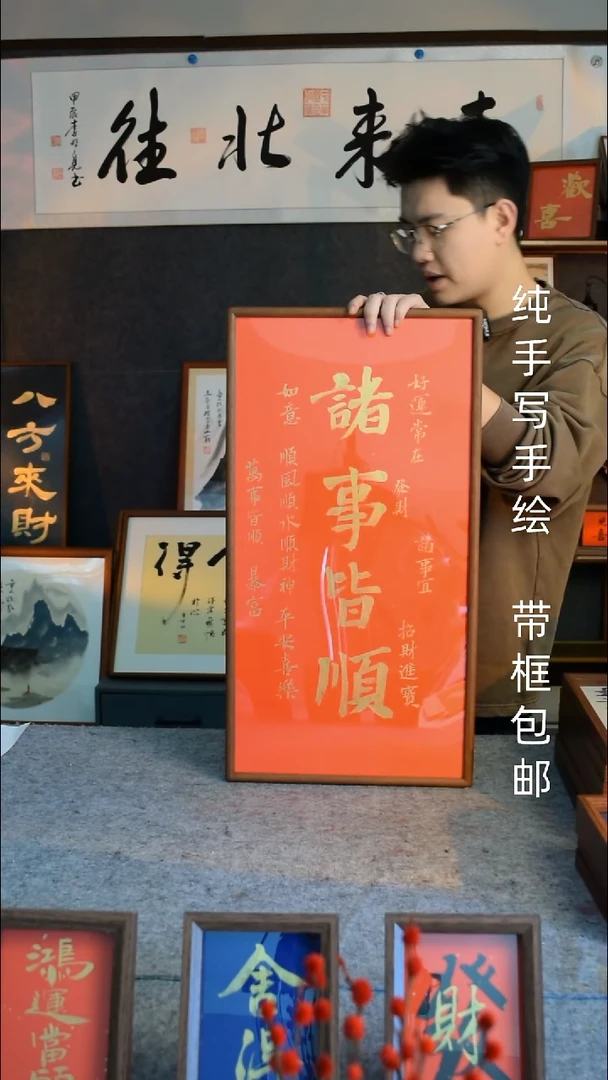 北往
來
甲辰李
書
歡
喜
八方來財
得
諸事皆順
好運常在
發財
諸事宜
招財進寶
如意
順風順水順財神
平安喜樂
萬事皆順
暴富
纯手写手绘
带框包邮
鴻運當頭
舍得
發財